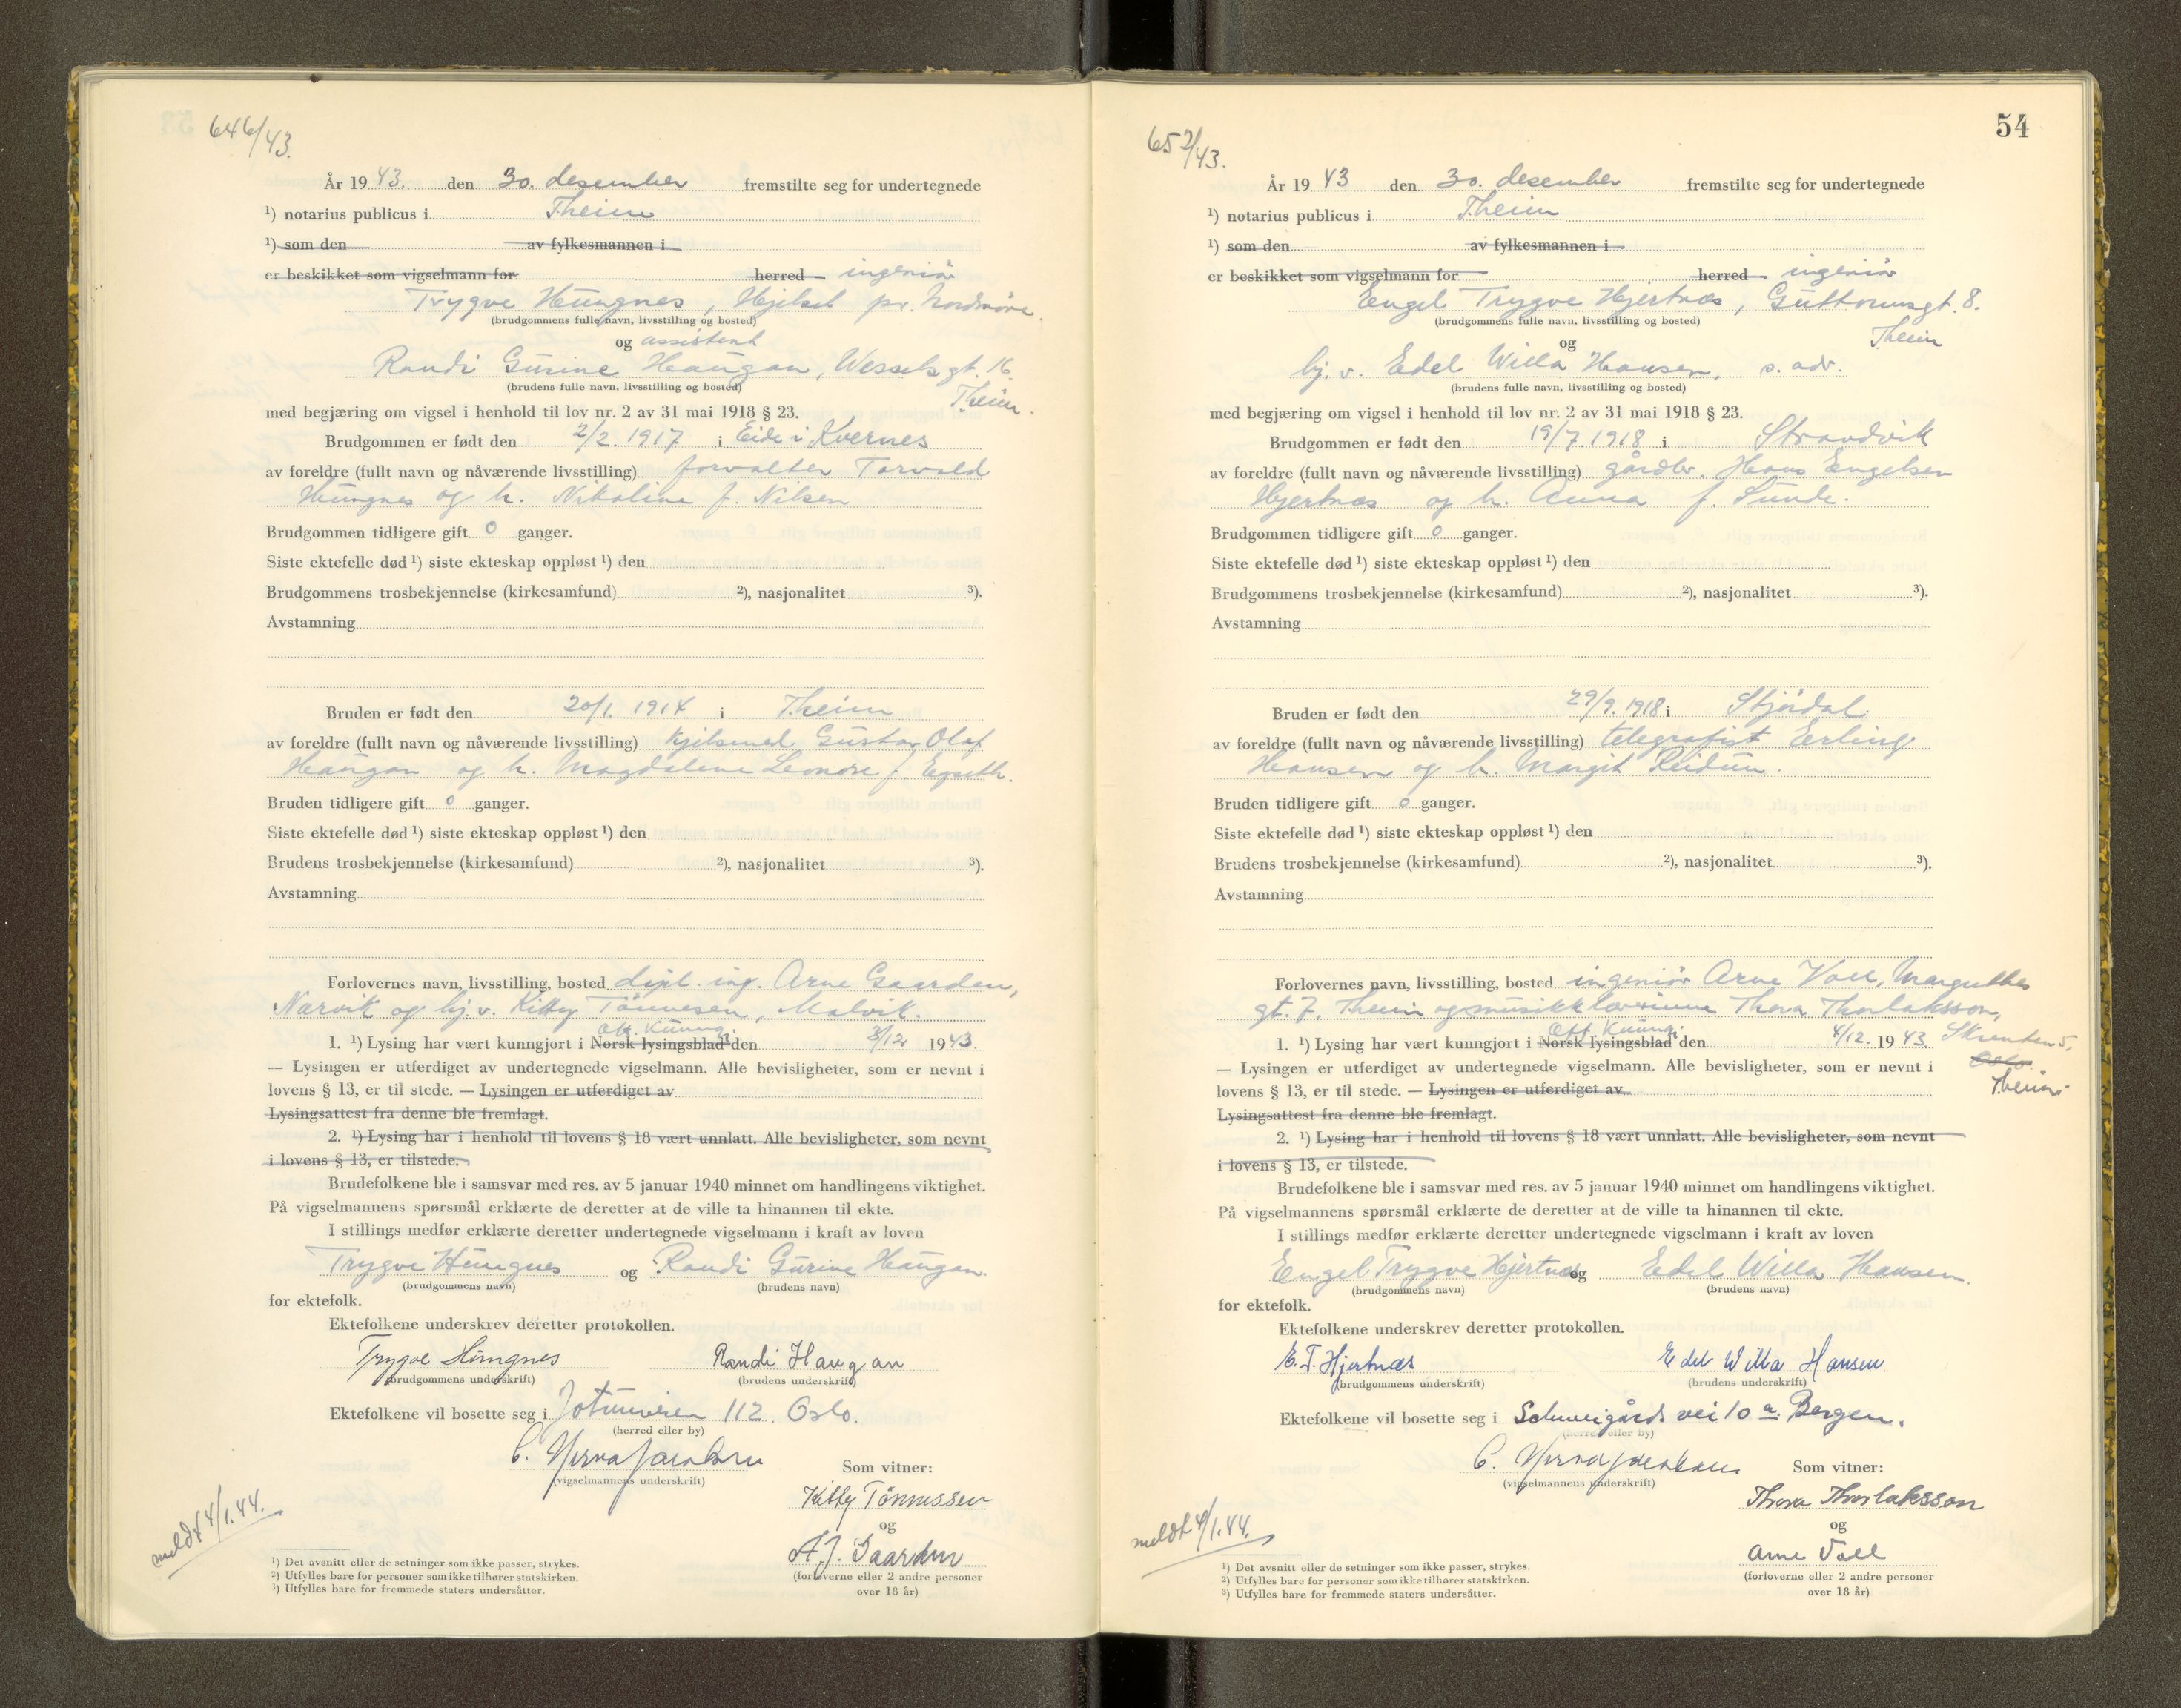 646/43.
År 1943. den 30. desember fremstilte seg for undertegnede
¹) notarius publicus i Theim
¹) som den av fylkesmannen i
er beskikket som vigselmann for herred ingeniör
Trygve Hungnes, Hjelset pr. Nordmöre.
(brudgommens fulle navn, livsstilling og bosted)
og assistent
Randi Gurine Haugan, Wesselsgt. 16
(brudens fulle navn, livsstilling og bosted)
Theim.
med begjæring om vigsel i henhold til lov nr. 2 av 31 mai 1918 § 23.
Brudgommen er født den 2/2. 1917 i Eide i Kvernes
av foreldre (fullt navn og nåværende livsstilling) forvalter Torvald
Hungnes og h. Nikoline f. Nilsen
Brudgommen tidligere gift 0 ganger.
Siste ektefelle død ¹) siste ekteskap oppløst ¹) den
Brudgommens trosbekjennelse (kirkesamfund) ²), nasjonalitet ³).
Avstamning
Bruden er født den 20/1. 1914 i Theim
av foreldre (fullt navn og nåværende livsstilling) Gustav Olaf
Haugan og h. Magdalene Leonore f. Egseth.
Bruden tidligere gift 0 ganger.
Siste ektefelle død ¹) siste ekteskap oppløst ¹) den
Brudens trosbekjennelse (kirkesamfund) ²), nasjonalitet ³).
Avstamning
Forlovernes navn, livsstilling, bosted dipl. ing. Arne Gaarden,
Narvik og hj. v. Kitty Tönnesen, Malvik.
Off. Kunng.
1. ¹) Lysing har vært kunngjort i Norsk lysingsblad den 3/12 1943.
— Lysingen er utferdiget av undertegnede vigselmann. Alle bevisligheter, som er nevnt i
lovens § 13, er til stede. — Lysingen er utferdiget av
Lysingsattest fra denne ble fremlagt.
2. ¹) Lysing har i henhold til lovens § 18 vært unnlatt. Alle bevisligheter, som nevnt
i lovens § 13, er tilstede.
Brudefolkene ble i samsvar med res. av 5 januar 1940 minnet om handlingens viktighet.
På vigselmannens spørsmål erklærte de deretter at de ville ta hinannen til ekte.
I stillings medfør erklærte deretter undertegnede vigselmann i kraft av loven
Trygve Hungnes og Randi Gurine Haugan.
(brudgommens navn) (brudens navn)
for ektefolk.
Ektefolkene underskrev deretter protokollen.
Trygve Hungnes Randi Haugan
(brudgommens underskrift) (brudens underskrift)
Ektefolkene vil bosette seg i Jotunveien 112. Oslo.
(herred eller by)
(vigselmannens underskrift) Som vitner:
Kitty Tönnessen
og
A. J. Gaarden
(forloverne eller 2 andre personer
over 18 år)
meldt 4/1.44.
¹) Det avsnitt eller de setninger som ikke passer, strykes.
²) Utfylles bare for personer som ikke tilhører statskirken.
³) Utfylles bare for fremmede staters undersåtter.
54
652/43.
År 1943 den 30. desember fremstilte seg for undertegnede
¹) notarius publicus i Theim
¹) som den av fylkesmannen i
er beskikket som vigselmann for herred ingeniör
Engel Trygve Hjertnæs, Guttormsgt. 8.
(brudgommens fulle navn, livsstilling og bosted)
Theim
og
hj. v. Edel Willa Hansen, s. adr.
(brudens fulle navn, livsstilling og bosted)
med begjæring om vigsel i henhold til lov nr. 2 av 31 mai 1918 § 23.
Brudgommen er født den 19/7. 1918 i Strandvik
av foreldre (fullt navn og nåværende livsstilling) gårdbr. Hans Engelsen
Hjertnæs og h. Anna f. Sunde.
Brudgommen tidligere gift 0 ganger.
Siste ektefelle død ¹) siste ekteskap oppløst ¹) den
Brudgommens trosbekjennelse (kirkesamfund) ²), nasjonalitet ³).
Avstamning
Bruden er født den 29/9. 1918 i Stjördal
av foreldre (fullt navn og nåværende livsstilling) telegrafist Erling
Hansen og h. Margit Reidun.
Bruden tidligere gift 0 ganger.
Siste ektefelle død ¹) siste ekteskap oppløst ¹) den
Brudens trosbekjennelse (kirkesamfund) ²), nasjonalitet ³).
Avstamning
Forlovernes navn, livsstilling, bosted ingeniör Arne Voll, Margrethes
gt. 7. Theim og musikklærerinne Thora Thorlaksson,
Off. Kunng.
1. ¹) Lysing har vært kunngjort i Norsk lysingsblad den 4/12. 1943 Skrenten 5,
Oslo.
Theim.
— Lysingen er utferdiget av undertegnede vigselmann. Alle bevisligheter, som er nevnt i
lovens § 13, er til stede. — Lysingen er utferdiget av
Lysingsattest fra denne ble fremlagt.
2. ¹) Lysing har i henhold til lovens § 18 vært unnlatt. Alle bevisligheter, som nevnt
i lovens § 13, er tilstede.
Brudefolkene ble i samsvar med res. av 5 januar 1940 minnet om handlingens viktighet.
På vigselmannens spørsmål erklærte de deretter at de ville ta hinannen til ekte.
I stillings medfør erklærte deretter undertegnede vigselmann i kraft av loven
Engel Trygve Hjertnæs og Edel Willa Hansen.
(brudgommens navn) (brudens navn)
for ektefolk.
Ektefolkene underskrev deretter protokollen.
E. T. Hjertnæs Edel Willa Hansen
(brudgommens underskrift) (brudens underskrift)
Ektefolkene vil bosette seg i Schweigårds vei 10 a. Bergen.
(herred eller by)
(vigselmannens underskrift) Som vitner:
Thora Thorlaksson
og
Arne Voll
(forloverne eller 2 andre personer
over 18 år)
meldt 4/1.44.
¹) Det avsnitt eller de setninger som ikke passer, strykes.
²) Utfylles bare for personer som ikke tilhører statskirken.
³) Utfylles bare for fremmede staters undersåtter.